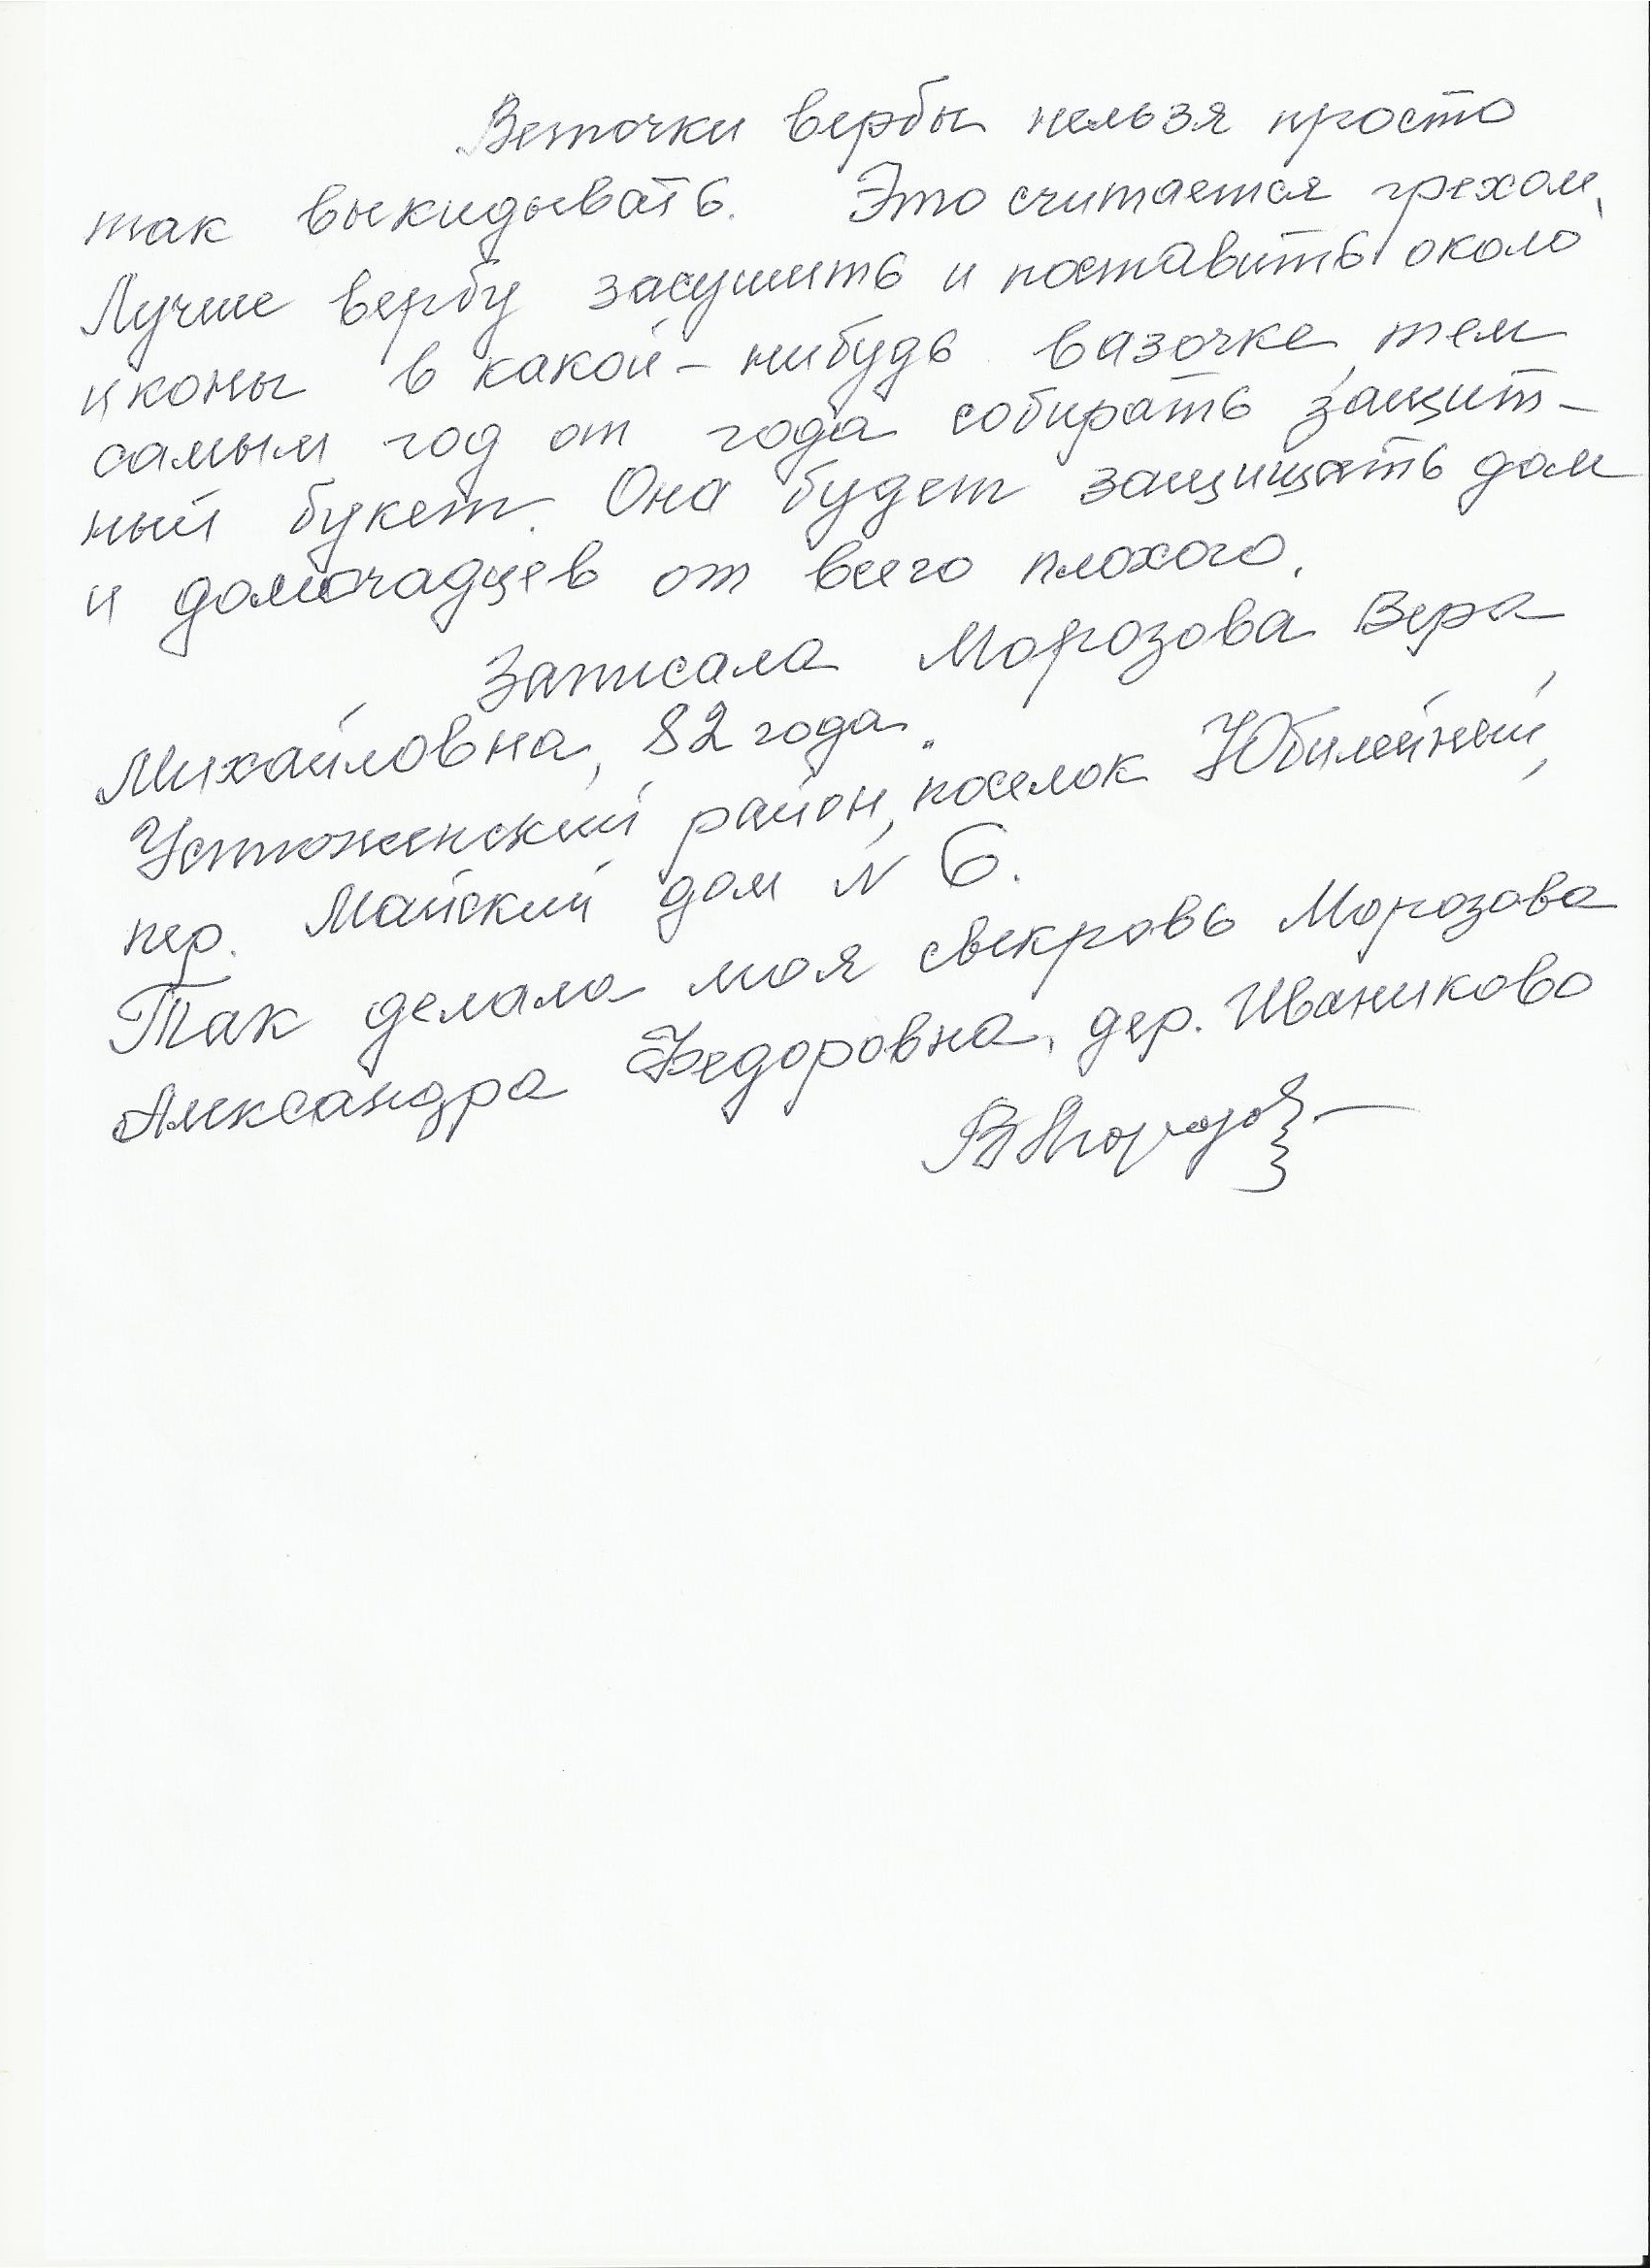 Веточки вербы нельзя просто
так выкидывать. Это считается грехом.
Лучше вербу засушить и поставить около
иконы в какой-нибудь вазочке, тем
самым год от года собирать защит-
ный букет. Она будет защищать дом
и домочадцев от всего плохого.
Записала Морозова Вера
Михайловна, 82 года.
Устюженский район, поселок Юбилейный,
пер. Майский дом N 6.
Так делала моя свекровь Морозова
Александра Федоровна, дер. Иваниково
ВМороз